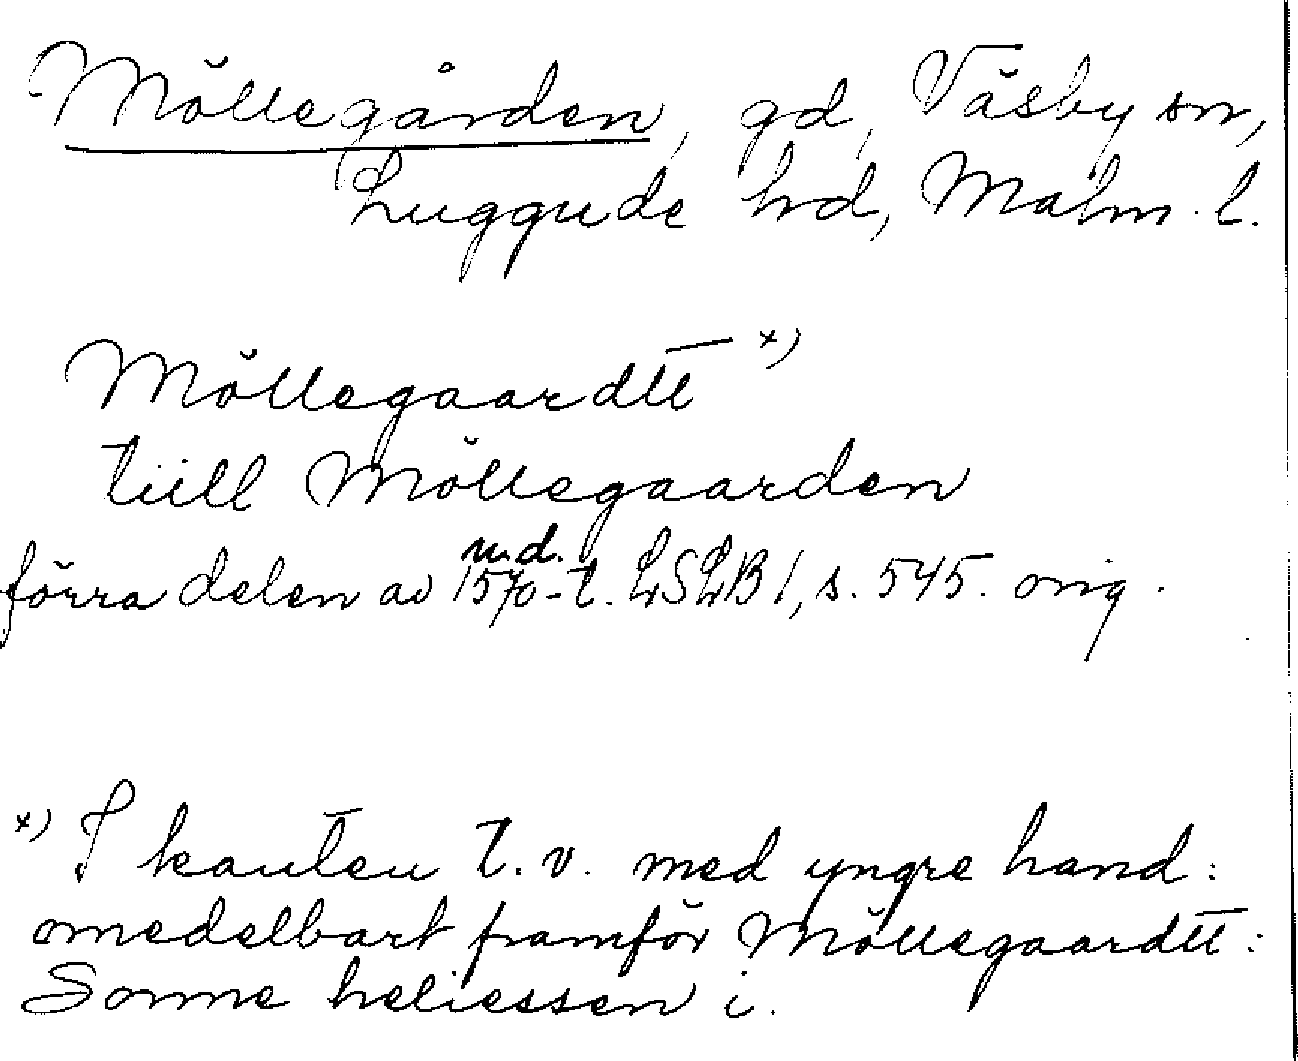 Möllegården, gd, Väsby sn,
Luggude hd, Malm. l.
Möllegaardtt x)
tiill Möllegaarden
förra delen av 1570-t. LSLB 1, s. 545. orig.
x) I kanten t. v. med yngre hand:
omedelbart framför Möllegaardtt:
Somme heliessen i.